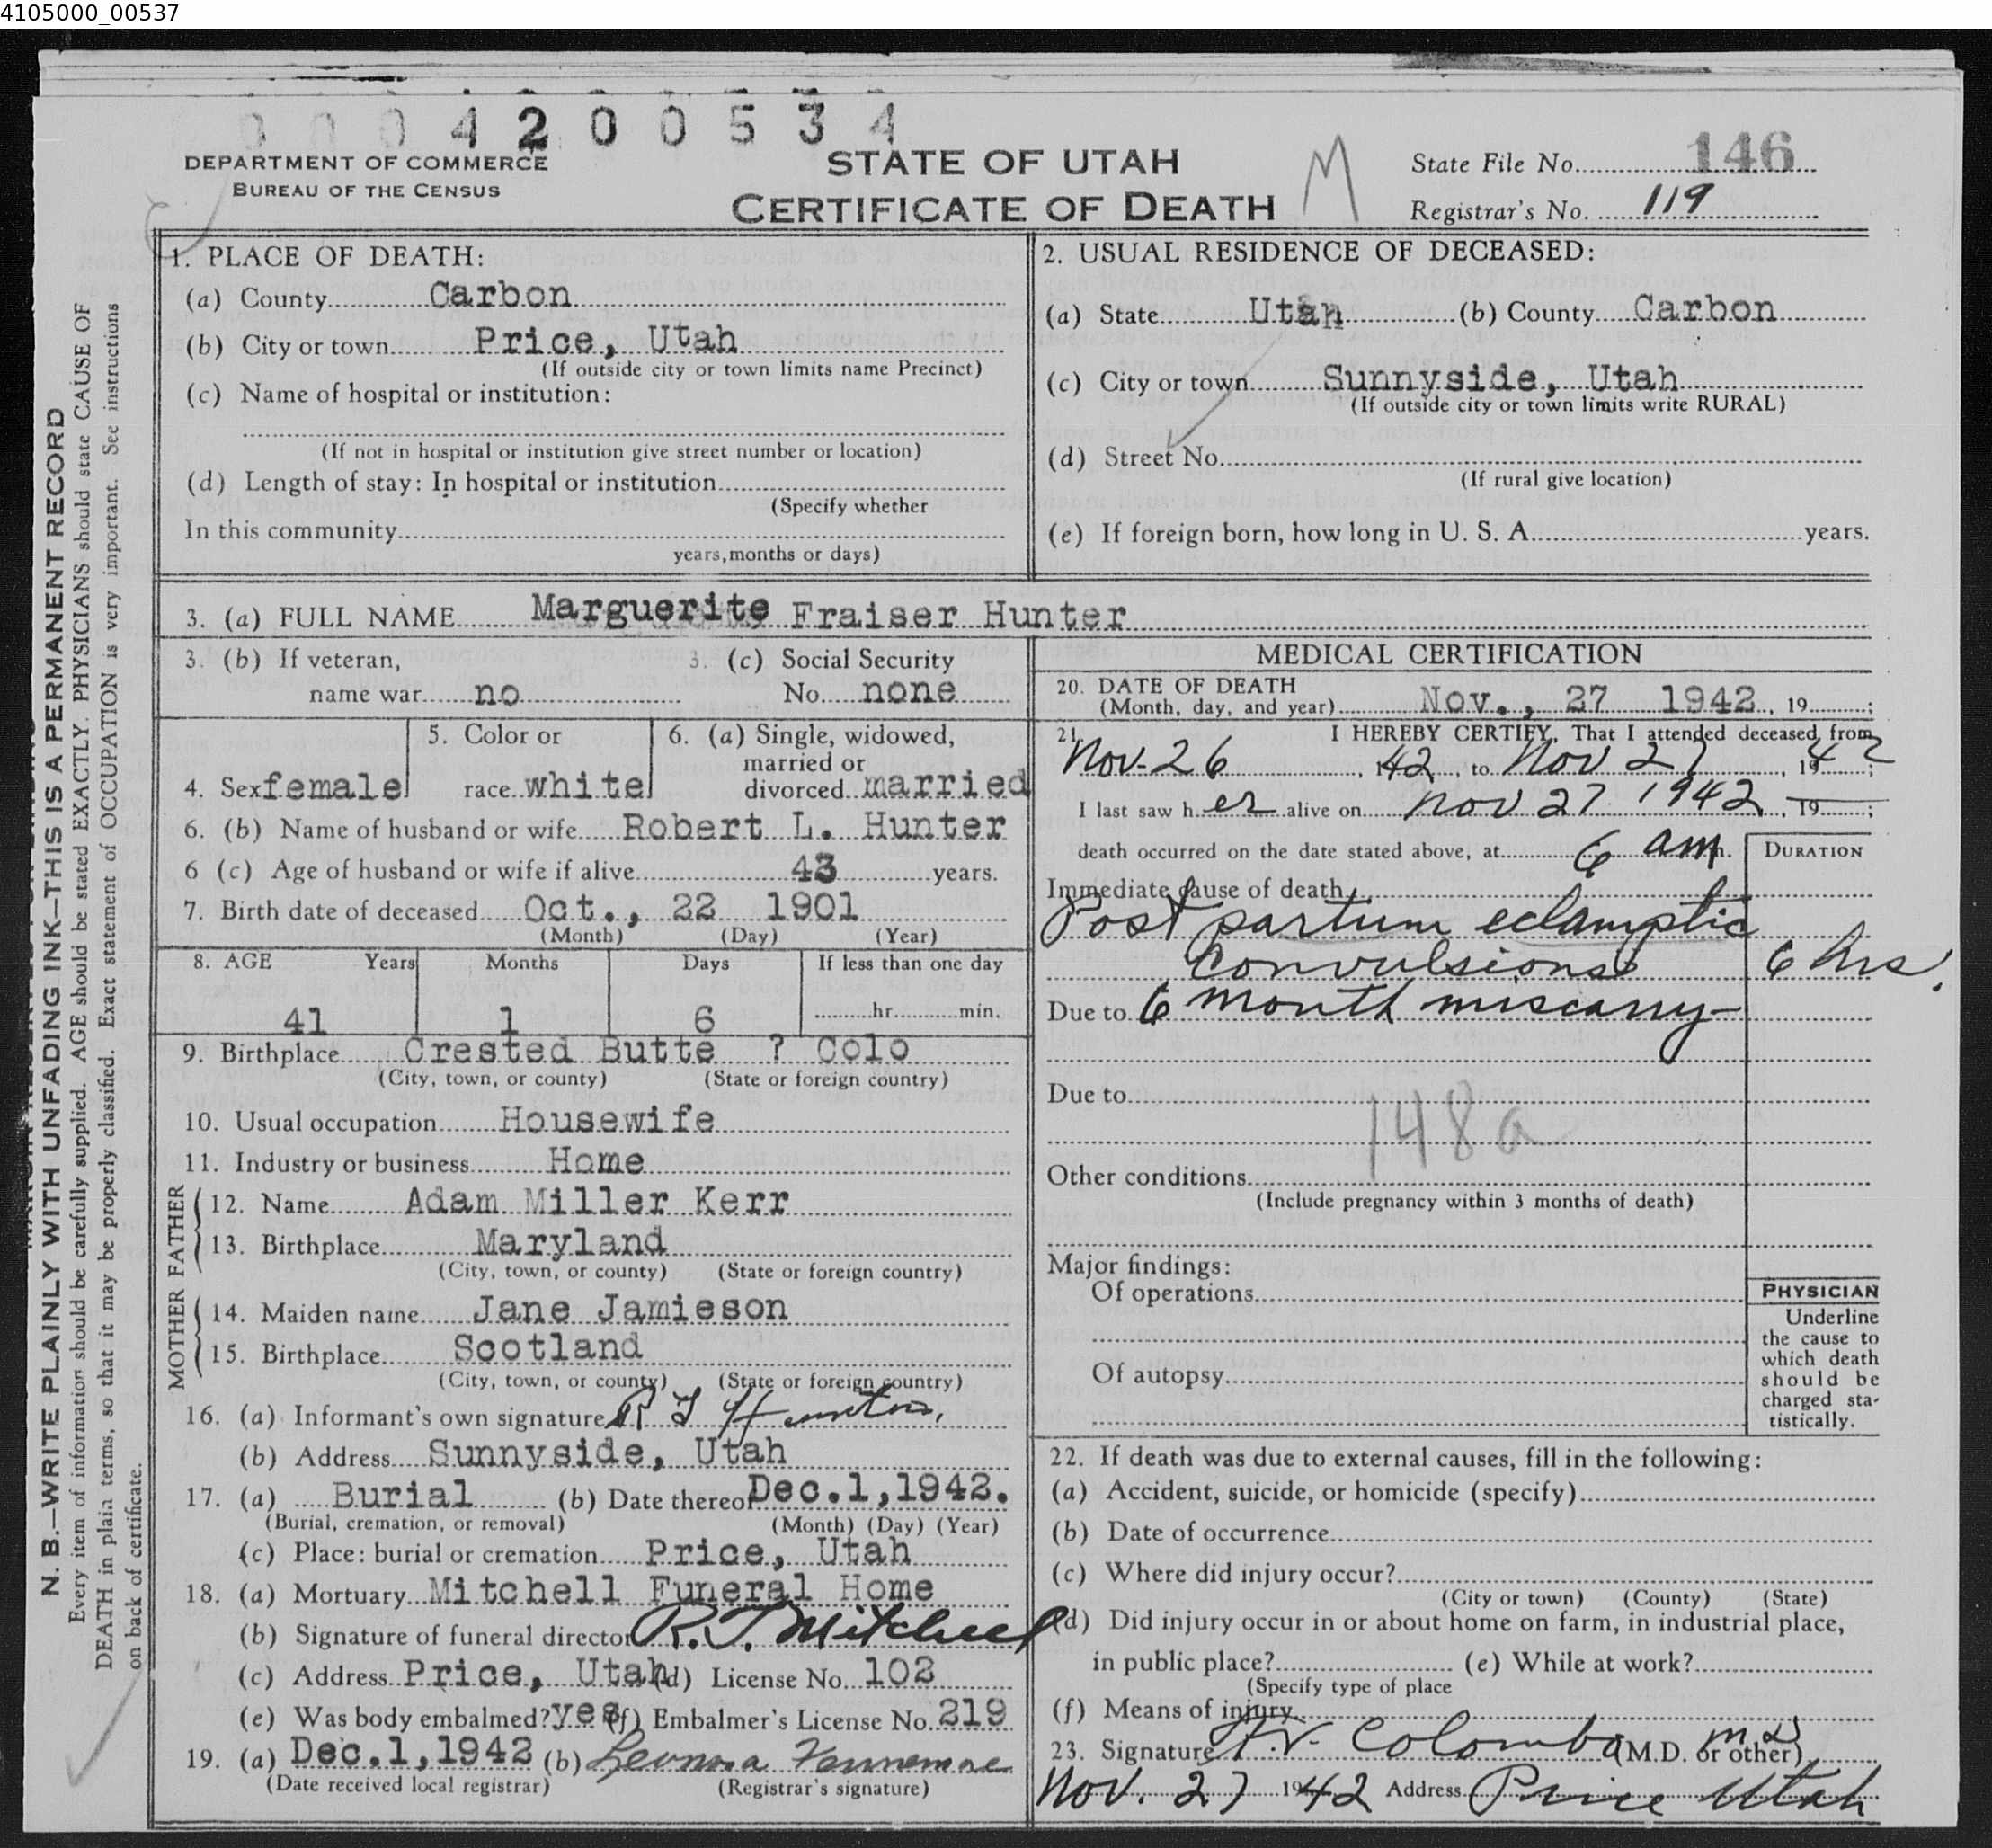 4105000_00537
0 0 0 4 2 0 0 5 3 4
DEPARTMENT OF COMMERCE
BUREAU OF THE CENSUS
STATE OF UTAH
CERTIFICATE OF DEATH
M
State File No. 146
Registrar's No. 119
N. B.—WRITE PLAINLY WITH UNFADING INK—THIS IS A PERMANENT RECORD
Every item of information should be carefully supplied. AGE should be stated EXACTLY. PHYSICIANS should state CAUSE OF
DEATH in plain terms, so that it may be properly classified. Exact statement of OCCUPATION is very important. See instructions
on back of certificate.
1. PLACE OF DEATH:
(a) County Carbon
(b) City or town Price, Utah
(If outside city or town limits name Precinct)
(c) Name of hospital or institution:
(If not in hospital or institution give street number or location)
(d) Length of stay: In hospital or institution
(Specify whether
In this community
years, months or days)
2. USUAL RESIDENCE OF DECEASED:
(a) State Utah (b) County Carbon
(c) City or town Sunnyside, Utah
(If outside city or town limits write RURAL)
(d) Street No.
(If rural give location)
(e) If foreign born, how long in U. S. A. years.
3. (a) FULL NAME Marguerite Fraiser Hunter
3. (b) If veteran, 3. (c) Social Security
name war no No. none
5. Color or 6. (a) Single, widowed,
married or
4. Sex female race white divorced married
6. (b) Name of husband or wife Robert L. Hunter
6 (c) Age of husband or wife if alive 43 years.
7. Birth date of deceased Oct., 22 1901
(Month) (Day) (Year)
8. AGE Years Months Days If less than one day
41 1 6 hr. min.
9. Birthplace Crested Butte ? Colo
(City, town, or county) (State or foreign country)
10. Usual occupation Housewife
11. Industry or business Home
FATHER
12. Name Adam Miller Kerr
13. Birthplace Maryland
(City, town, or county) (State or foreign country)
MOTHER
14. Maiden name Jane Jamieson
15. Birthplace Scotland
(City, town, or county) (State or foreign country)
16. (a) Informant's own signature R L Hunter
(b) Address Sunnyside, Utah
17. (a) Burial (b) Date thereof Dec.1,1942.
(Burial, cremation, or removal) (Month) (Day) (Year)
(c) Place: burial or cremation Price, Utah
18. (a) Mortuary Mitchell Funeral Home
(b) Signature of funeral director R.T. Mitchell
(c) Address Price, Utah (d) License No. 102
(e) Was body embalmed? yes (f) Embalmer's License No. 219
19. (a) Dec.1,1942 (b)
(Date received local registrar) (Registrar's signature)
MEDICAL CERTIFICATION
20. DATE OF DEATH
(Month, day, and year) Nov., 27 1942, 19 ;
21. I HEREBY CERTIFY, That I attended deceased from
Nov-26, 1942, to Nov 27, 1942;
I last saw her alive on Nov 27 1942, 19 ;
death occurred on the date stated above, at 6 am m.
DURATION
Immediate cause of death
Post partum eclamptic
convulsions 6 hrs.
Due to 6 month miscarry-
Due to
148a
Other conditions
(Include pregnancy within 3 months of death)
Major findings:
Of operations
Of autopsy
PHYSICIAN
Underline
the cause to
which death
should be
charged sta-
tistically.
22. If death was due to external causes, fill in the following:
(a) Accident, suicide, or homicide (specify)
(b) Date of occurrence
(c) Where did injury occur?
(City or town) (County) (State)
(d) Did injury occur in or about home on farm, in industrial place,
in public place? (e) While at work?
(Specify type of place
(f) Means of injury
23. Signature F.V. Colombo MD (M.D. or other)
Nov. 27 1942 Address Price Utah